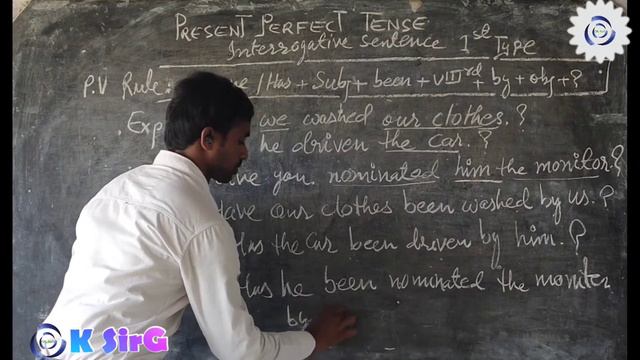 PRESENT PERFECT TENSE
Interrogative sentence 1st Type
P.V Rule: /Has + Subj + been + VIIIrd + by + obj + ?
we washed our clothes. ?
he driven the car. ?
you nominated him the monitor?
Have our clothes been washed by us. ?
Has the car been driven by him. ?
Has he been nominated the moniter
by
K SirG